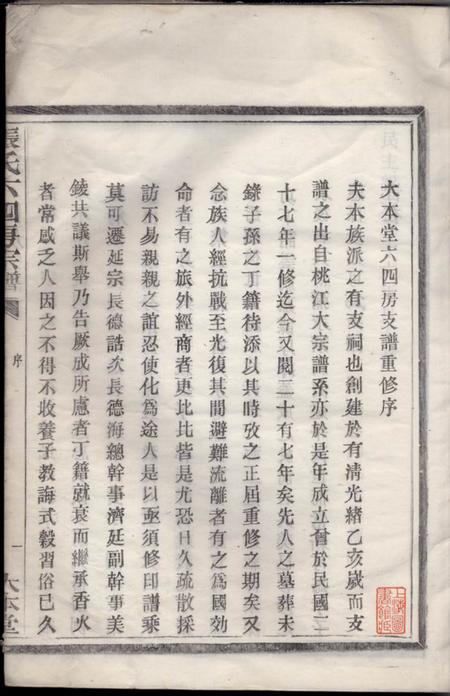 大本堂六四房支譜重修序
夫本族派之有支祠也創建於有清光緒乙亥歲而支
譜之出自桃江大宗譜系亦於是年成立曾於民國二
十七年一修迄今又閱三十有七年矣先人之墓葬未
錄子孫之丁籍待添以其時攷之正屆重修之期矣又
念族人經抗戰至光復其間避難流離者有之爲國効
命者有之旅外經商者更比比皆是尤恐日久疏散採
訪不易親親之誼忍使化爲途人是以亟須修印譜乘
莫可遷延宗長德誥次長德海總幹事濟延副幹事美
鋑共議斯舉乃告厥成所慮者丁籍就衰而繼承香火
者常感乏人因之不得不收養子教誨式穀習俗已久
張氏六四房宗譜
序
一
大本堂
上海圖書館藏